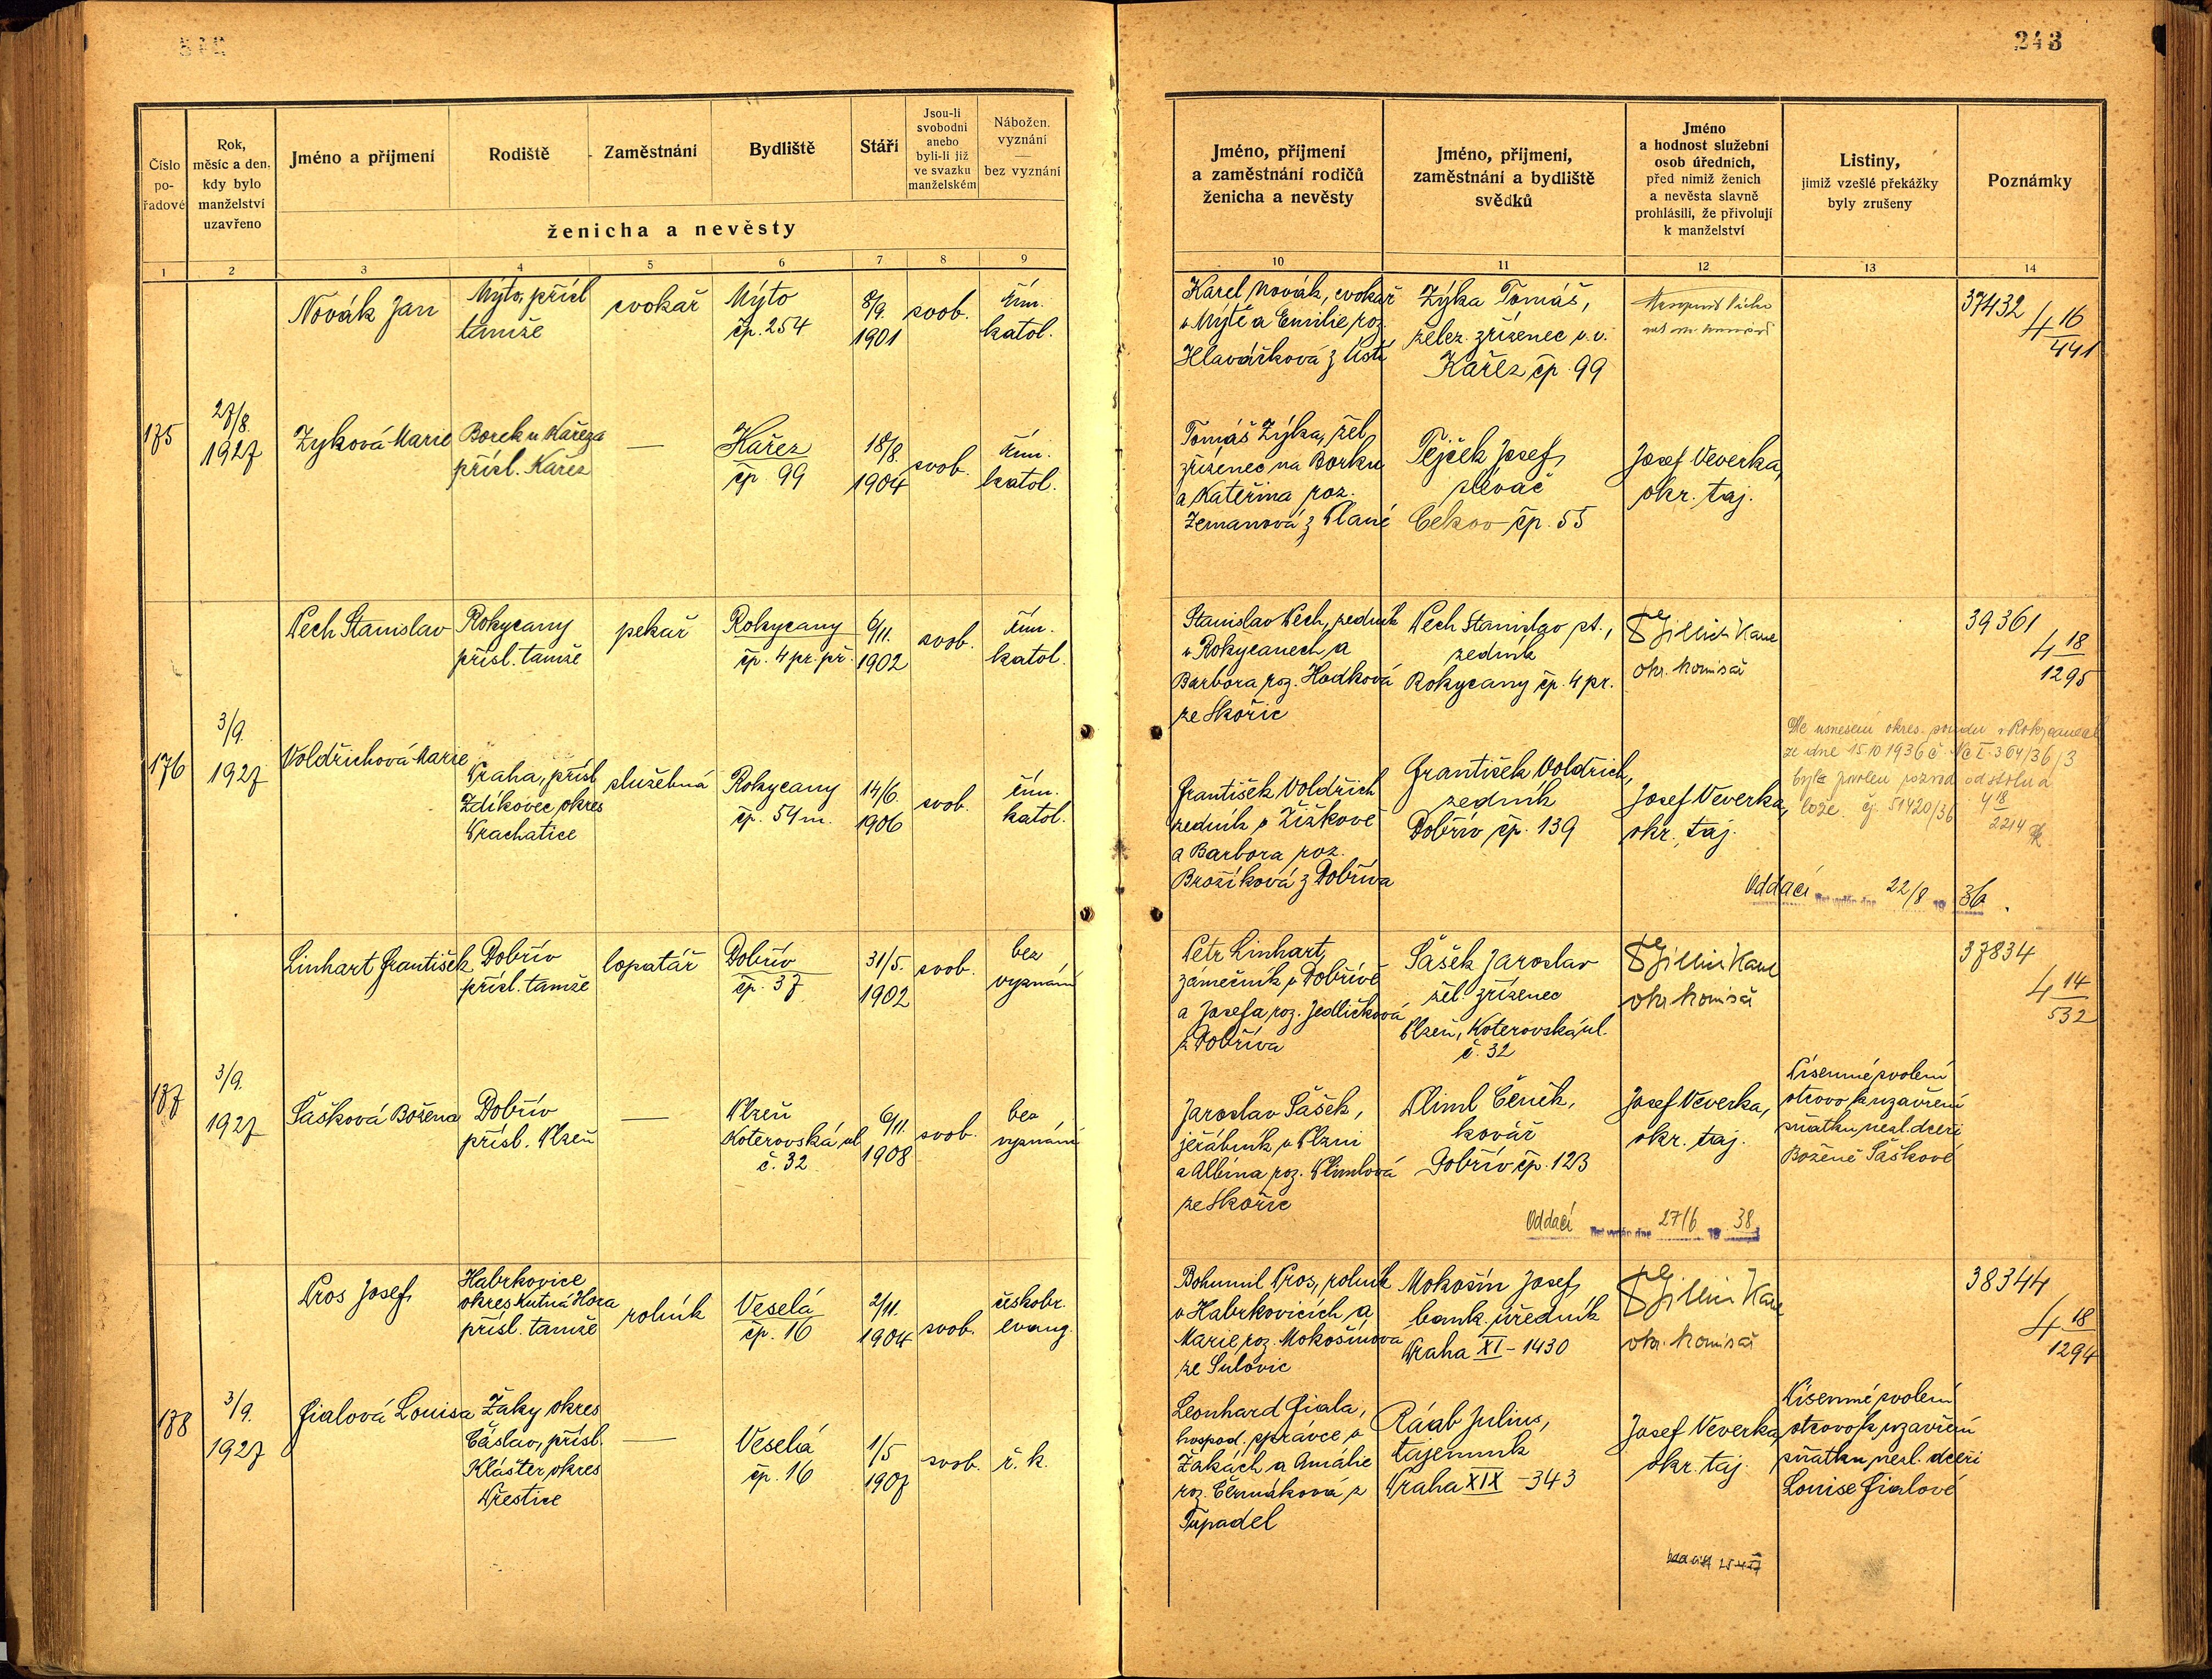 243
Číslo
po-
řadové
Rok,
měsíc a den,
kdy bylo
manželství
uzavřeno
Jméno a příjmení
Rodiště
Zaměstnání
Bydliště
Stáří
Jsou-li
svobodni
anebo
byli-li již
ve svazku
manželském
Nábožen.
vyznání
—
bez vyznání
ženicha a nevěsty
1
2
3
4
5
6
7
8
9
Jméno, příjmení
a zaměstnání rodičů
ženicha a nevěsty
Jméno, příjmení,
zaměstnání a bydliště
svědků
Jméno
a hodnost služební
osob úředních,
před nimiž ženich
a nevěsta slavně
prohlásili, že přivolují
k manželství
Listiny,
jimiž vzešlé překážky
byly zrušeny
Poznámky
10
11
12
13
14
175
27/8.
1927
Novák Jan
Mýto, přísl
tamže
cvokař
Mýto
čp. 254
8/9.
1901
svob.
řím.
katol.
Karel Novák, cvokař
v Mýtě a Emilie roz.
Hlaváčková z Ústí
Zýka Tomáš,
želez. zřízenec v. v.
Kařez čp. 99
37432
4 16
441
Zyková Marie
Borek u Kařeza
přísl. Kařez
—
Kařez
čp 99
18/8.
1904
svob.
řím.
katol.
Tomáš Zýka, žel.
zřízenec na Borku
a Kateřina roz.
Zemanová z Plané
Tejček Josef,
slévač
Cekov čp. 55
Josef Veverka,
okr. taj.
176
3/9.
1927
Pech Stanislav
Rokycany
přísl. tamže
pekař
Rokycany
čp. 4 pr. př.
6/11.
1902
svob.
řím.
katol.
Stanislav Pech, zedník
v Rokycanech a
Barbora roz. Hodková
ze Skořic
Pech Stanislav st.,
zedník
Rokycany čp. 4 pr.
okr. komisař
39361
4 18
1295
Voldřichová Marie
Praha, přísl
Zdíkovec okres
Prachatice
služebná
Rokycany
čp. 54 m.
14/6.
1906
svob.
řím.
katol.
František Voldřich
zedník v Žižkově
a Barbora roz.
Brožíková z Dobříva
František Voldřich,
zedník
Dobřív čp. 139
Josef Veverka,
okr. taj.
Dle usnesení okres. soudu v Rokycanech
ze dne 15 10 1936 č. Nc I 364/36/3
byl povolen rozvod od stolu a
lože. čj. 51420/36 4 18
2214
Oddací list vydán dne 22/8 19 36.
177
3/9.
1927
Linhart František
Dobřív
přísl. tamže
lopatář
Dobřív
čp. 37
31/5.
1902
svob.
bez
vyznání
Petr Linhart,
zámečník v Dobřívě
a Josefa roz. Jedličková
z Dobříva
Šašek Jaroslav
žel. zřízenec
Plzeň, Koterovská ul.
č. 32
okr. komisař
37834
4 14
532
Šašková Božena
Dobřív
přísl. Plzeň
—
Plzeň
Koterovská ul
č. 32
6/11.
1908
svob.
bez
vyznání
Jaroslav Šašek,
jeřábník v Plzni
a Albína roz. Plimlová
ze Skořic
Pliml Čeněk,
kovář
Dobřív čp. 123
Josef Veverka,
okr. taj.
Písemné svolení
otcovo k uzavření
sňatku nezl. dceři
Boženě Šaškové
Oddací list vydán dne 27/6 19 38
178
3/9.
1927
Pros Josef
Habrkovice
okres Kutná Hora
přísl. tamže
rolník
Veselá
čp. 16
2/11.
1904
svob.
českobr.
evang.
Bohumil Pros, rolník
v Habrkovicích a
Marie roz. Mokošínova
ze Sulovic
Mokošín Josef,
bank. úředník
Praha XI - 1430
okr. komisař
38344
4 18
1294
Fialová Louisa
Žáky okres
Čáslav, přísl.
Klášter, okres
Přestice
—
Veselá
čp. 16
1/5
1907
svob.
ř. k.
Leonhard Fiala,
hospod. správce v
Žákách a Amálie
roz. Čermáková z
Tupadel
Ráab Julius,
tajemník
Praha XIX - 343
Josef Veverka,
okr. taj.
Písemné svolení
otcovo k uzavření
sňatku nezl. dceři
Louise Fialové